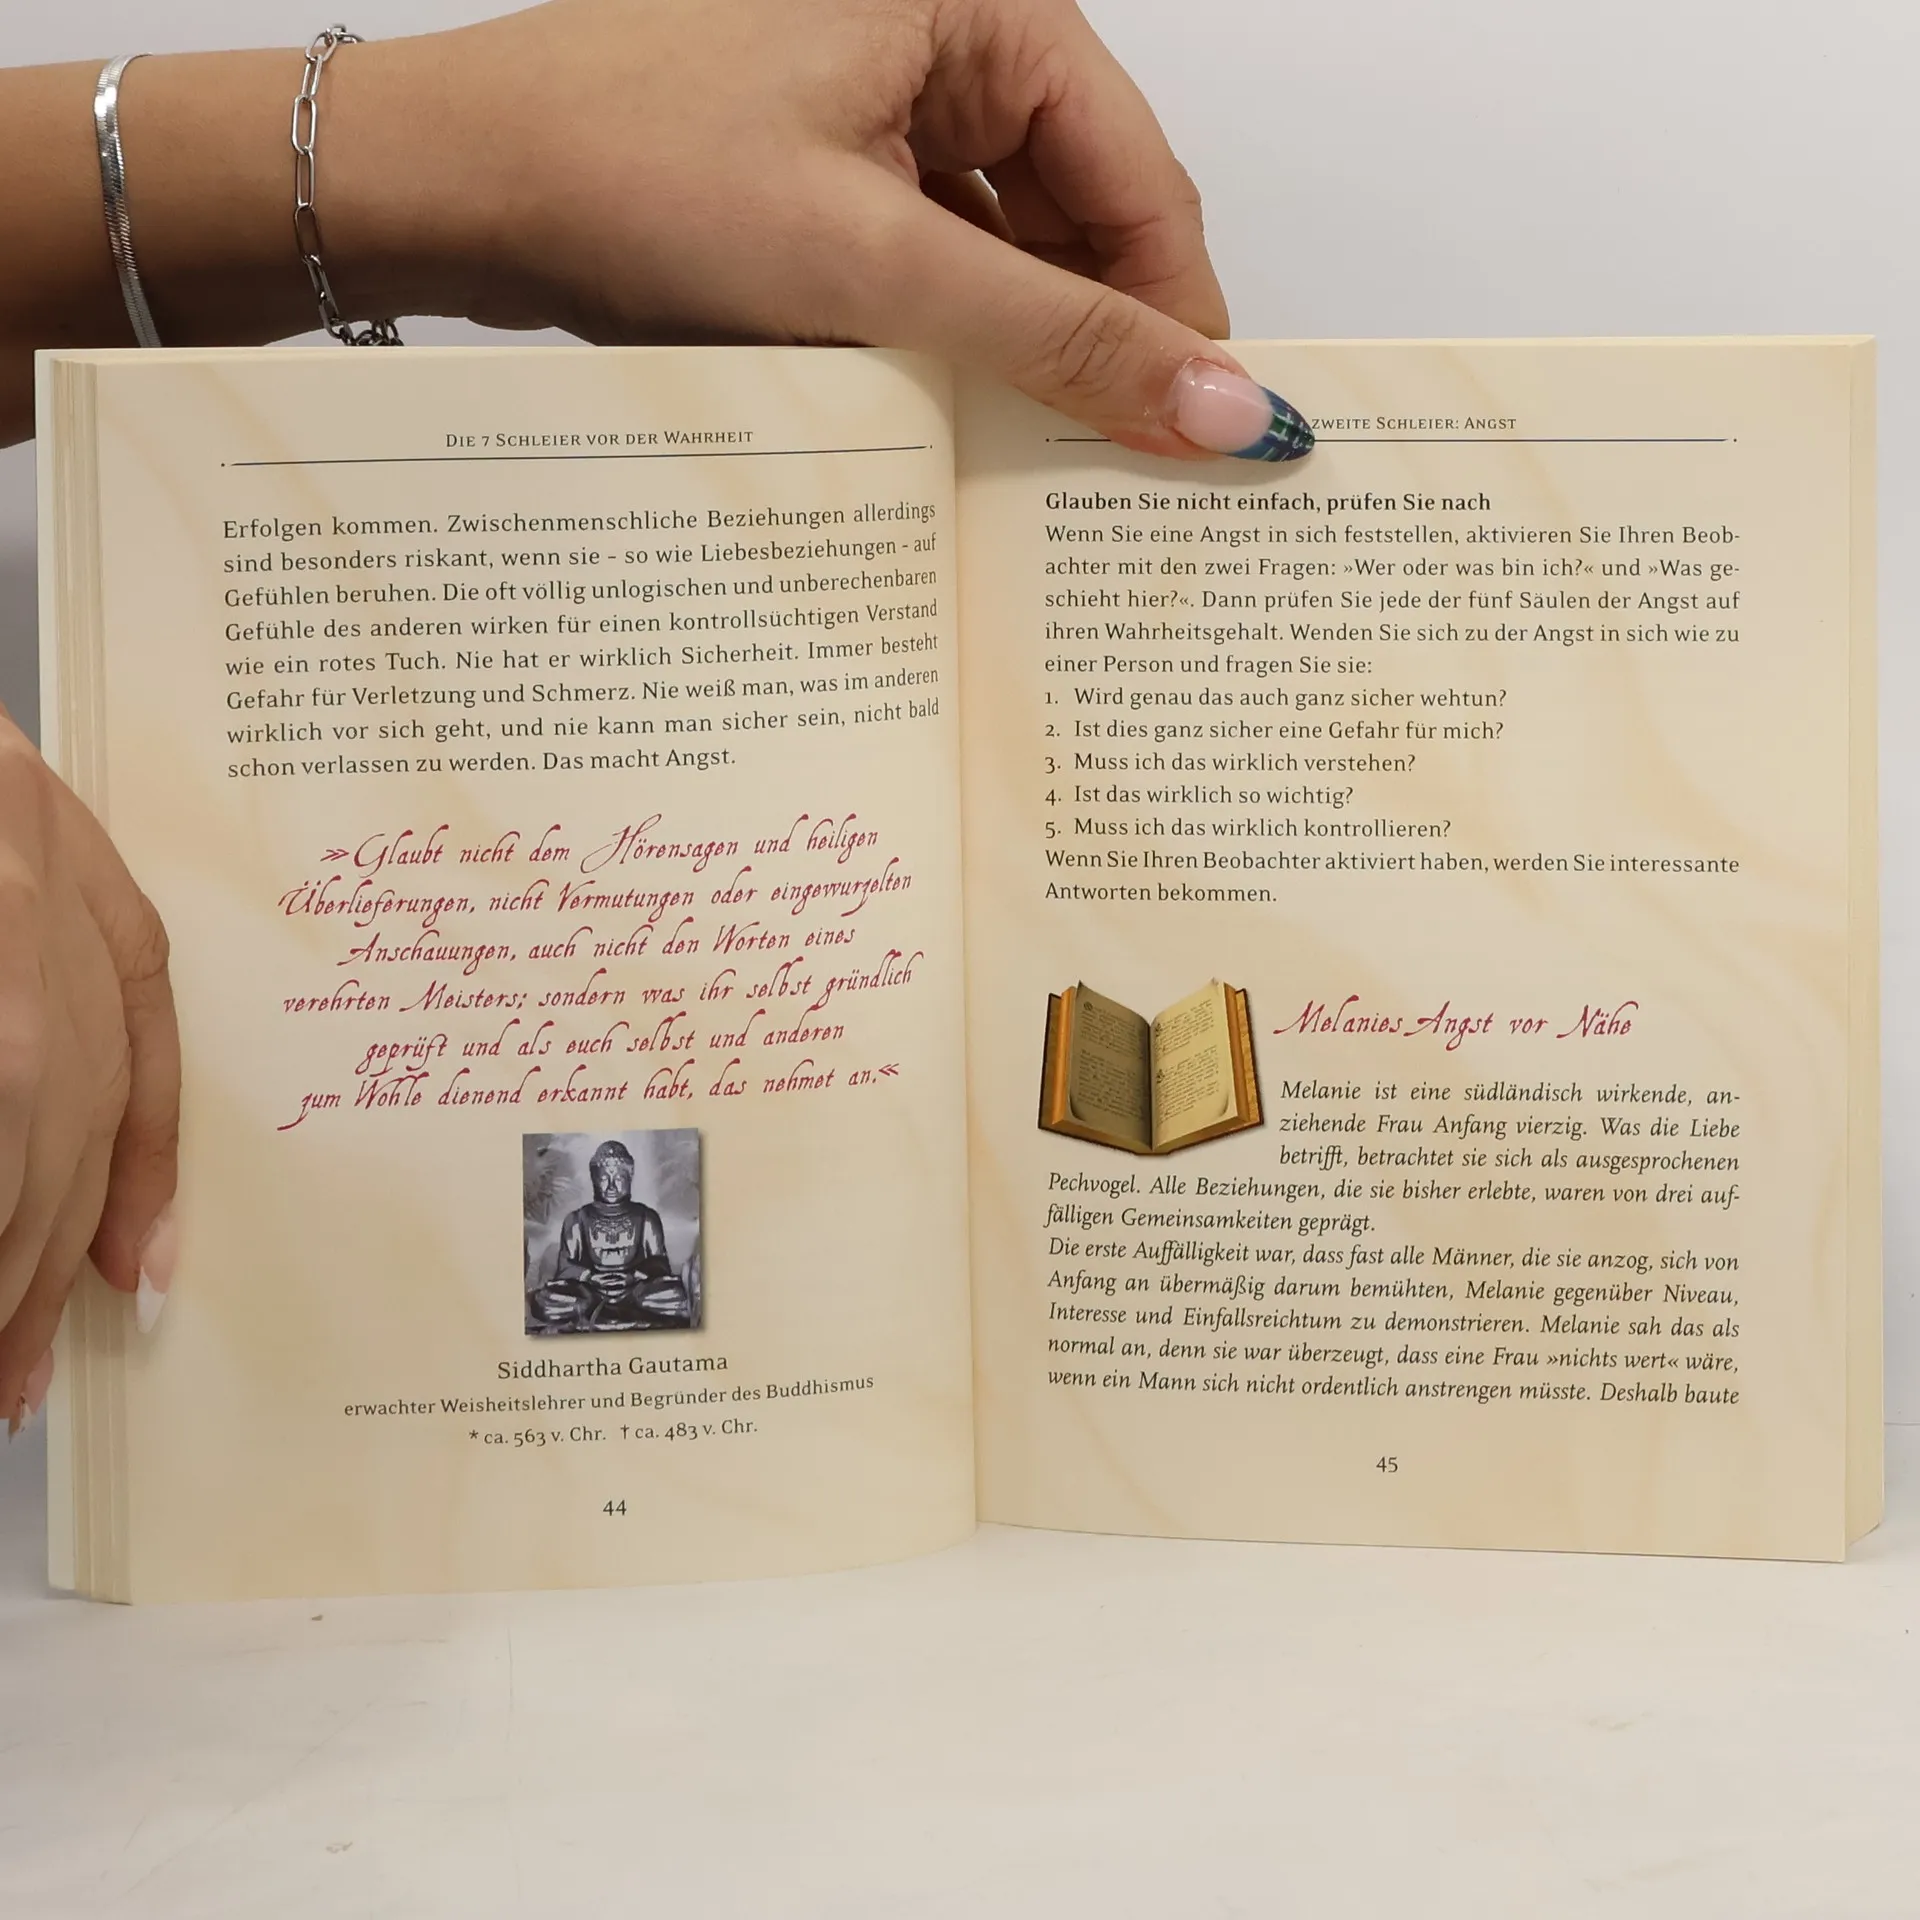 Die 7 Schleier vor der Wahrheit
Erfolgen kommen. Zwischenmenschliche Beziehungen allerdings
sind besonders riskant, wenn sie – so wie Liebesbeziehungen – auf
Gefühlen beruhen. Die oft völlig unlogischen und unberechenbaren
Gefühle des anderen wirken für einen kontrollsüchtigen Verstand
wie ein rotes Tuch. Nie hat er wirklich Sicherheit. Immer besteht
Gefahr für Verletzung und Schmerz. Nie weiß man, was im anderen
wirklich vor sich geht, und nie kann man sicher sein, nicht bald
schon verlassen zu werden. Das macht Angst.
»Glaubt nicht dem Hörensagen und heiligen
Überlieferungen, nicht Vermutungen oder eingewurzelten
Anschauungen, auch nicht den Worten eines
verehrten Meisters; sondern was ihr selbst gründlich
geprüft und als euch selbst und anderen
zum Wohle dienend erkannt habt, das nehmet an.«
Siddhartha Gautama
erwachter Weisheitslehrer und Begründer des Buddhismus
* ca. 563 v. Chr. † ca. 483 v. Chr.
44
zweite Schleier: Angst
Glauben Sie nicht einfach, prüfen Sie nach
Wenn Sie eine Angst in sich feststellen, aktivieren Sie Ihren Beob-
achter mit den zwei Fragen: »Wer oder was bin ich?« und »Was ge-
schieht hier?«. Dann prüfen Sie jede der fünf Säulen der Angst auf
ihren Wahrheitsgehalt. Wenden Sie sich zu der Angst in sich wie zu
einer Person und fragen Sie sie:
1. Wird genau das auch ganz sicher wehtun?
2. Ist dies ganz sicher eine Gefahr für mich?
3. Muss ich das wirklich verstehen?
4. Ist das wirklich so wichtig?
5. Muss ich das wirklich kontrollieren?
Wenn Sie Ihren Beobachter aktiviert haben, werden Sie interessante
Antworten bekommen.
Melanies Angst vor Nähe
Melanie ist eine südländisch wirkende, an-
ziehende Frau Anfang vierzig. Was die Liebe
betrifft, betrachtet sie sich als ausgesprochenen
Pechvogel. Alle Beziehungen, die sie bisher erlebte, waren von drei auf-
fälligen Gemeinsamkeiten geprägt.
Die erste Auffälligkeit war, dass fast alle Männer, die sie anzog, sich von
Anfang an übermäßig darum bemühten, Melanie gegenüber Niveau,
Interesse und Einfallsreichtum zu demonstrieren. Melanie sah das als
normal an, denn sie war überzeugt, dass eine Frau »nichts wert« wäre,
wenn ein Mann sich nicht ordentlich anstrengen müsste. Deshalb baute
45